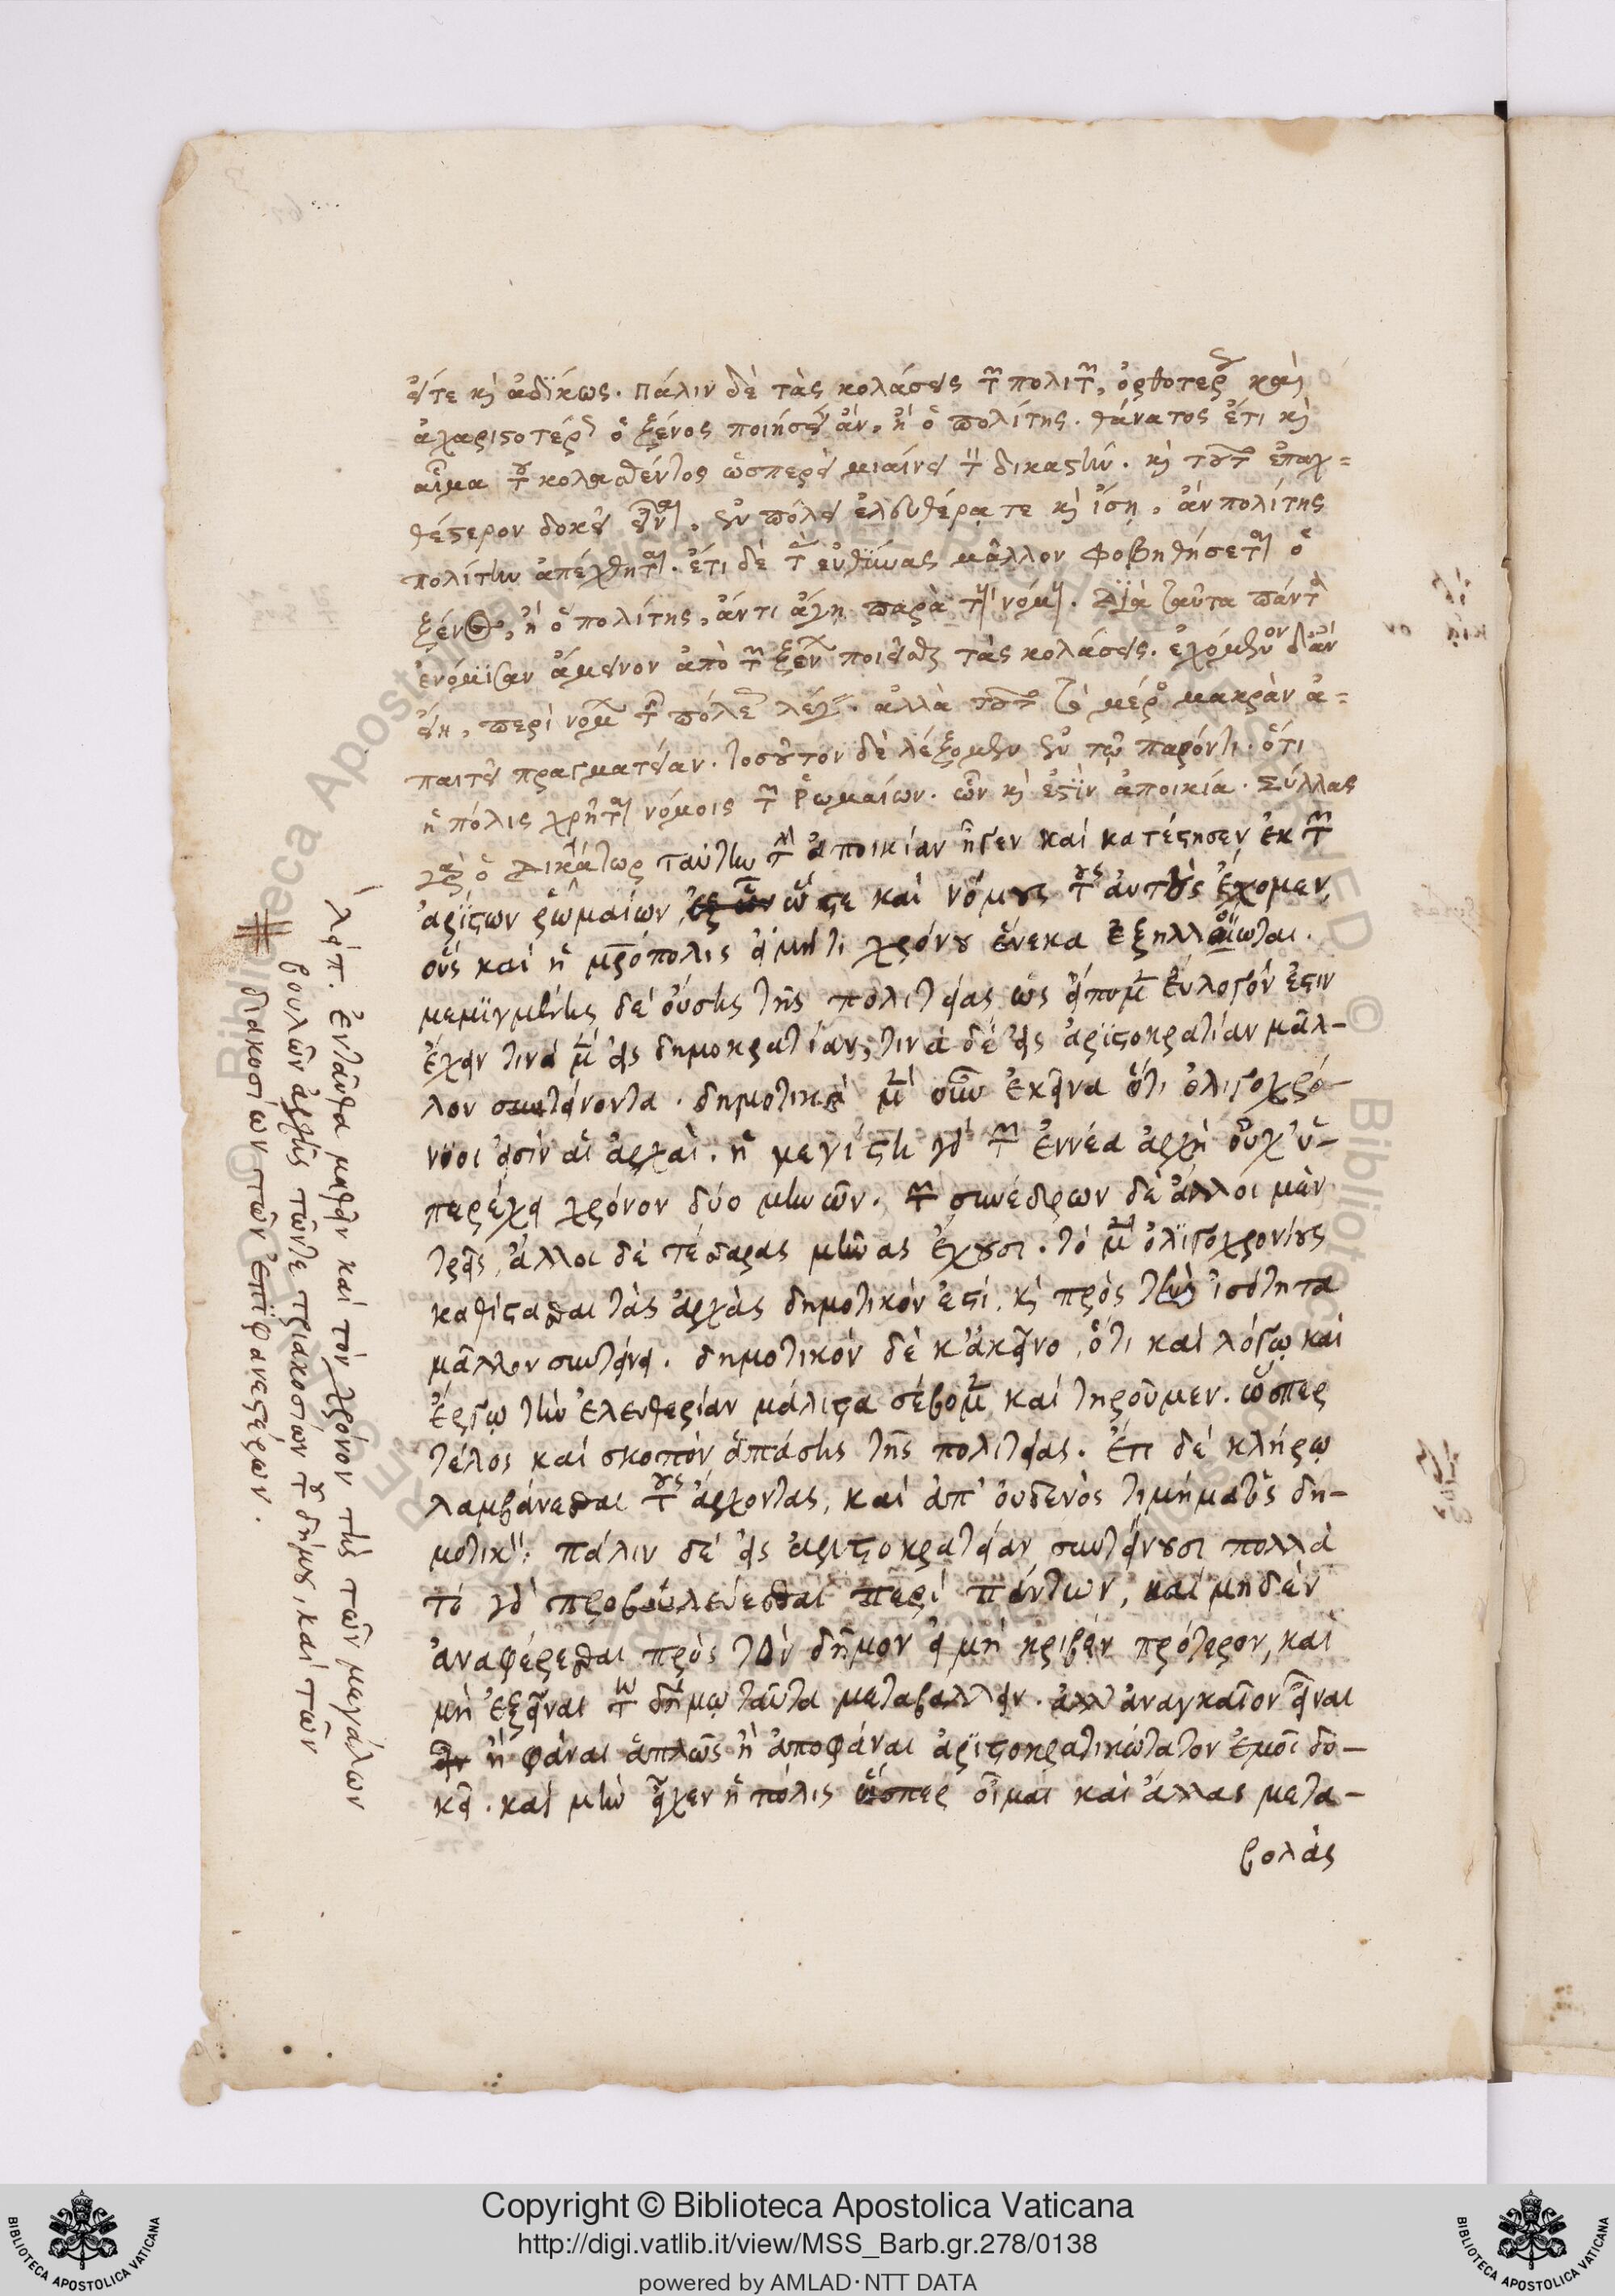 ἔστε κὶ ἀδίκως. πάλιν δὲ τὰς κολάσεις τῶν πολιτῶν, ὀρθοτέρως καὶ
ἀχαριστοτέρως ὁ ξένος ποιήσει ἄν, ἢ ὁ πολίτης. θάνατος ἔτι κὶ
αἷμα τοῦ κολασθέντος ὥσπερεὶ μιαίνει τοὺς δικαστὰς. κὶ τοῦτο ἐπαχ=
θέστερον δοκεῖ εἶναι, ἐν πόλει ἐλευθέρᾳ τε κὶ ἴσῃ, ἂν πολίτης
πολίτην ἀπέχθηται. ἔτι δὲ τὰς εὐθύνας μᾶλλον φοβηθήσεται ὁ
ξένος, ἢ ὁ πολίτης, ἄν τι ἄγῃ παρὰ τοὺς νόμους. Διὰ ταῦτα πάντα
ἐνόμισαν ἄμεινον ἀπὸ τῶν ξένων ποιεῖσθαι τὰς κολάσεις. ἐχόμενον δ' ἂν
εἴη, περὶ νόμων τῆς πόλεως λέγειν. ἀλλὰ τοῦτο τὸ μέρος μακρὰν ἀ=
παιτεῖ πραγματείαν. τοσοῦτον δὲ λέξομεν ἐν τῷ παρόντι. ὅτι
ἡ πόλις χρῆται νόμοις τῶν Ῥωμαίων. ὧν κὶ ἐστὶν ἀποικία. Σύλλας
γὰρ ὁ Δικτάτωρ ταύτην τὴν ἀποικίαν ἦγεν καὶ κατέστησεν ἐκ τῶν
ἀρίστων ῥωμαίων, ἐξ ὧν ὥστε καὶ νόμους τοὺς αὐτοὺς ἔχομεν,
οὓς καὶ ἡ μητρόπολις εἰ μή τι χρόνου ἕνεκα ἐξηλλοίωται.
μεμιγμένης δὲ οὔσης τῆς πολιτείας ὡς εἴπομεν εὔλογόν ἐστιν
ἔχειν τινὰ μὲν εἰς δημοκρατίαν, τινὰ δὲ εἰς ἀριστοκρατίαν μᾶλ-
λον συντείνοντα. δημοτικὰ μὲν οὖν ἐκεῖνα ὅτι ὀλιγοχρό-
νιοι εἰσὶν αἱ ἀρχαί. ἡ μεγίστη γὰρ τῶν ἐννέα ἀρχὴ οὐχ ὑ-
περέχει χρόνον δύο μηνῶν. τῶν συνέδρων δὲ ἄλλοι μὲν
τρεῖς, ἄλλοι δὲ τέσσαρας μῆνας ἔχουσι. τὸ μὲν ὀλιγοχρονίους
καθίστασθαι τὰς ἀρχὰς δημοτικόν ἐστι, κὶ πρὸς τὴν ἰσότητα
μᾶλλον συντείνει. δημοτικὸν δὲ κἀκεῖνο, ὅτι καὶ λόγῳ καὶ
ἔργῳ τὴν ἐλευθερίαν μάλιστα σέβομεν καὶ τηροῦμεν. ὥσπερ
τέλος καὶ σκοπὸν ἁπάσης τῆς πολιτείας. ἔτι δὲ κλήρῳ
λαμβάνεσθαι τοὺς ἄρχοντας, καὶ ἀπ' οὐδενὸς τιμήματος δη-
μοτικόν: πάλιν δὲ εἰς ἀριστοκρατείαν συντείνουσι πολλὰ
τό γὰρ προβουλεύεσθαι περὶ πάντων, καὶ μηδὲν
ἀναφέρεσθαι πρὸς τὸν δῆμον εἰ μὴ κριθὲν πρότερον, καὶ
μὴ ἐξεῖναι τῷ δήμῳ ταῦτα μεταβαλλειν. ἀλλ' ἀναγκαῖον εἶναι
ἢ φάναι ἁπλῶς ἢ ἀποφάναι ἀριστοκρατικώτατον ἐμοὶ δο-
κεῖ. καὶ μὴν εἶχεν ἡ πόλις ὥσπερ οἶμαι καὶ ἄλλας μετα-
βολὰς
λείπ. ἐνταῦθα μηθὲν καὶ τὸν χρόνον τῆς τῶν μεγάλων
βουλῶν ἀρχῆς τῶντε τριακοσίων τοῦ δήμου, καὶ τῶν
διακοσίων τῶν ἐπιφανεστέρων.